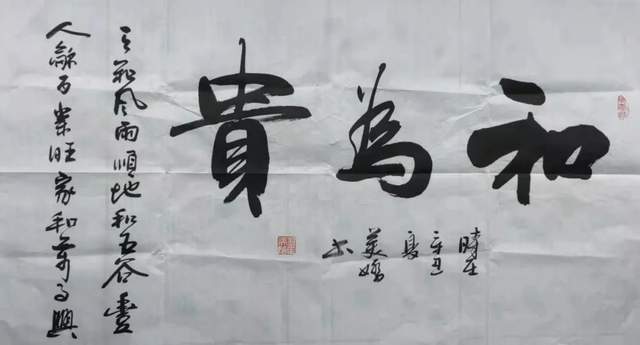 和為貴
時在
辛丑
夏
美嬌
书
天和風雨順地和五谷豐
人龢百業旺家和萬事興